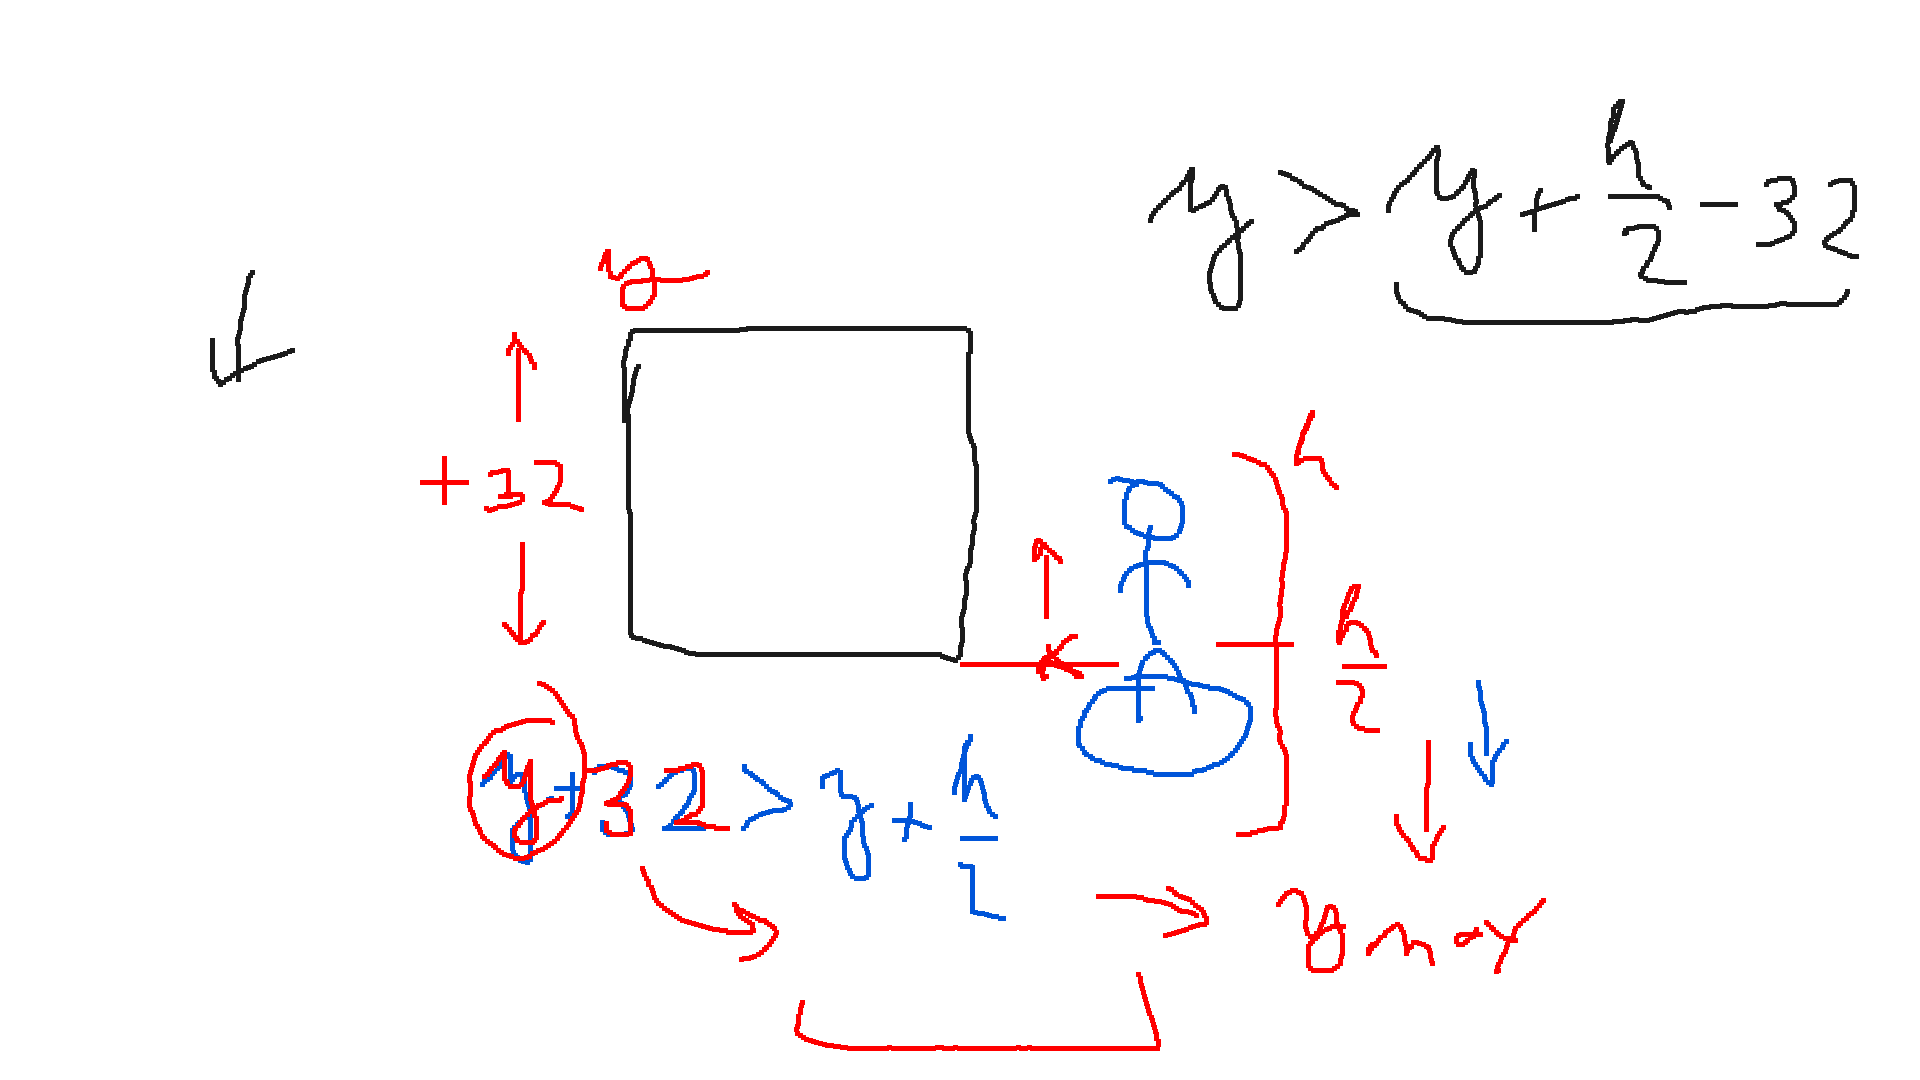 y > y + h/2 - 32
y
h
+32
h/2
y+32 > y + h/2
y max